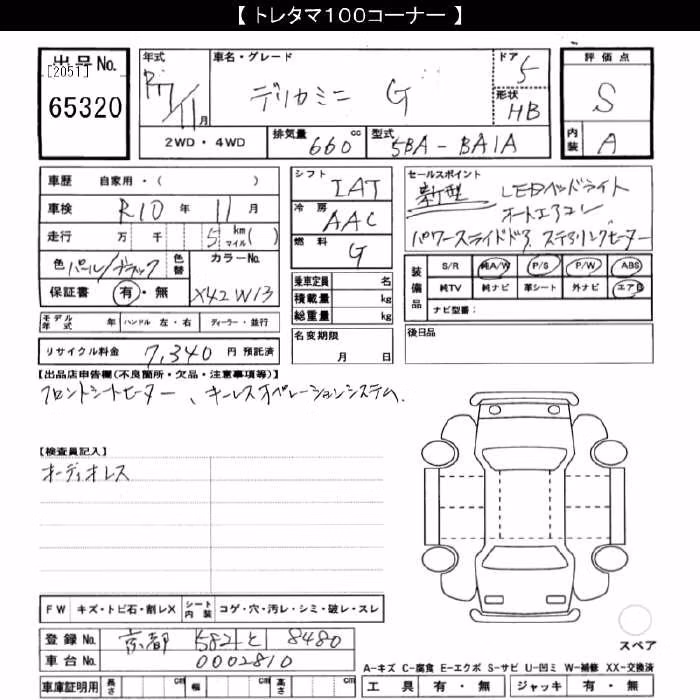 【 トレタマ100コーナー 】
出品No.
[2051]
65320
年式 R7 / 11月
車名・グレード
デリカミニ G
ドア 5
形状 HB
2WD・4WD
排気量 660 cc
型式 5BA - BA1A
評価点
S
内装 A
車歴 自家用・( )
車検 R10 年 11 月
走行 万 千 5 km マイル ( )
色 パール/ブラック 色替 カラーNo.
保証書 有・無 X42 W13
モデル年式 年 ハンドル 左・右 ディーラー・並行
リサイクル料金 7,340 円 預託済
シフト IAT
冷房 AAC
燃料 G
乗車定員 名
積載量 kg
総重量 kg
名変期限
月 日
セールスポイント
新型 LEDヘッドライト
オートエアコン
パワースライドドア ステアリングヒーター
装備品 S/R 純A/W P/S P/W ABS
純TV 純ナビ 革シート 外ナビ エアB
ナビ型番:
後日品
【出品店申告欄(不良箇所・欠品・注意事項等)】
フロントシートヒーター、キーレスオペレーションシステム.
【検査員記入】
オーディオレス
FW キズ・トビ石・割レX シート内装 コゲ・穴・汚レ・シミ・破レ・スレ
登録No. 京都 582 と 8480
車台No. 0002810
車庫証明用 長さ cm 幅 cm 高さ cm
スペア
A-キズ C-腐食 E-エクボ S-サビ U-凹ミ W-補修 XX-交換済
工具 有・無 ジャッキ 有・無